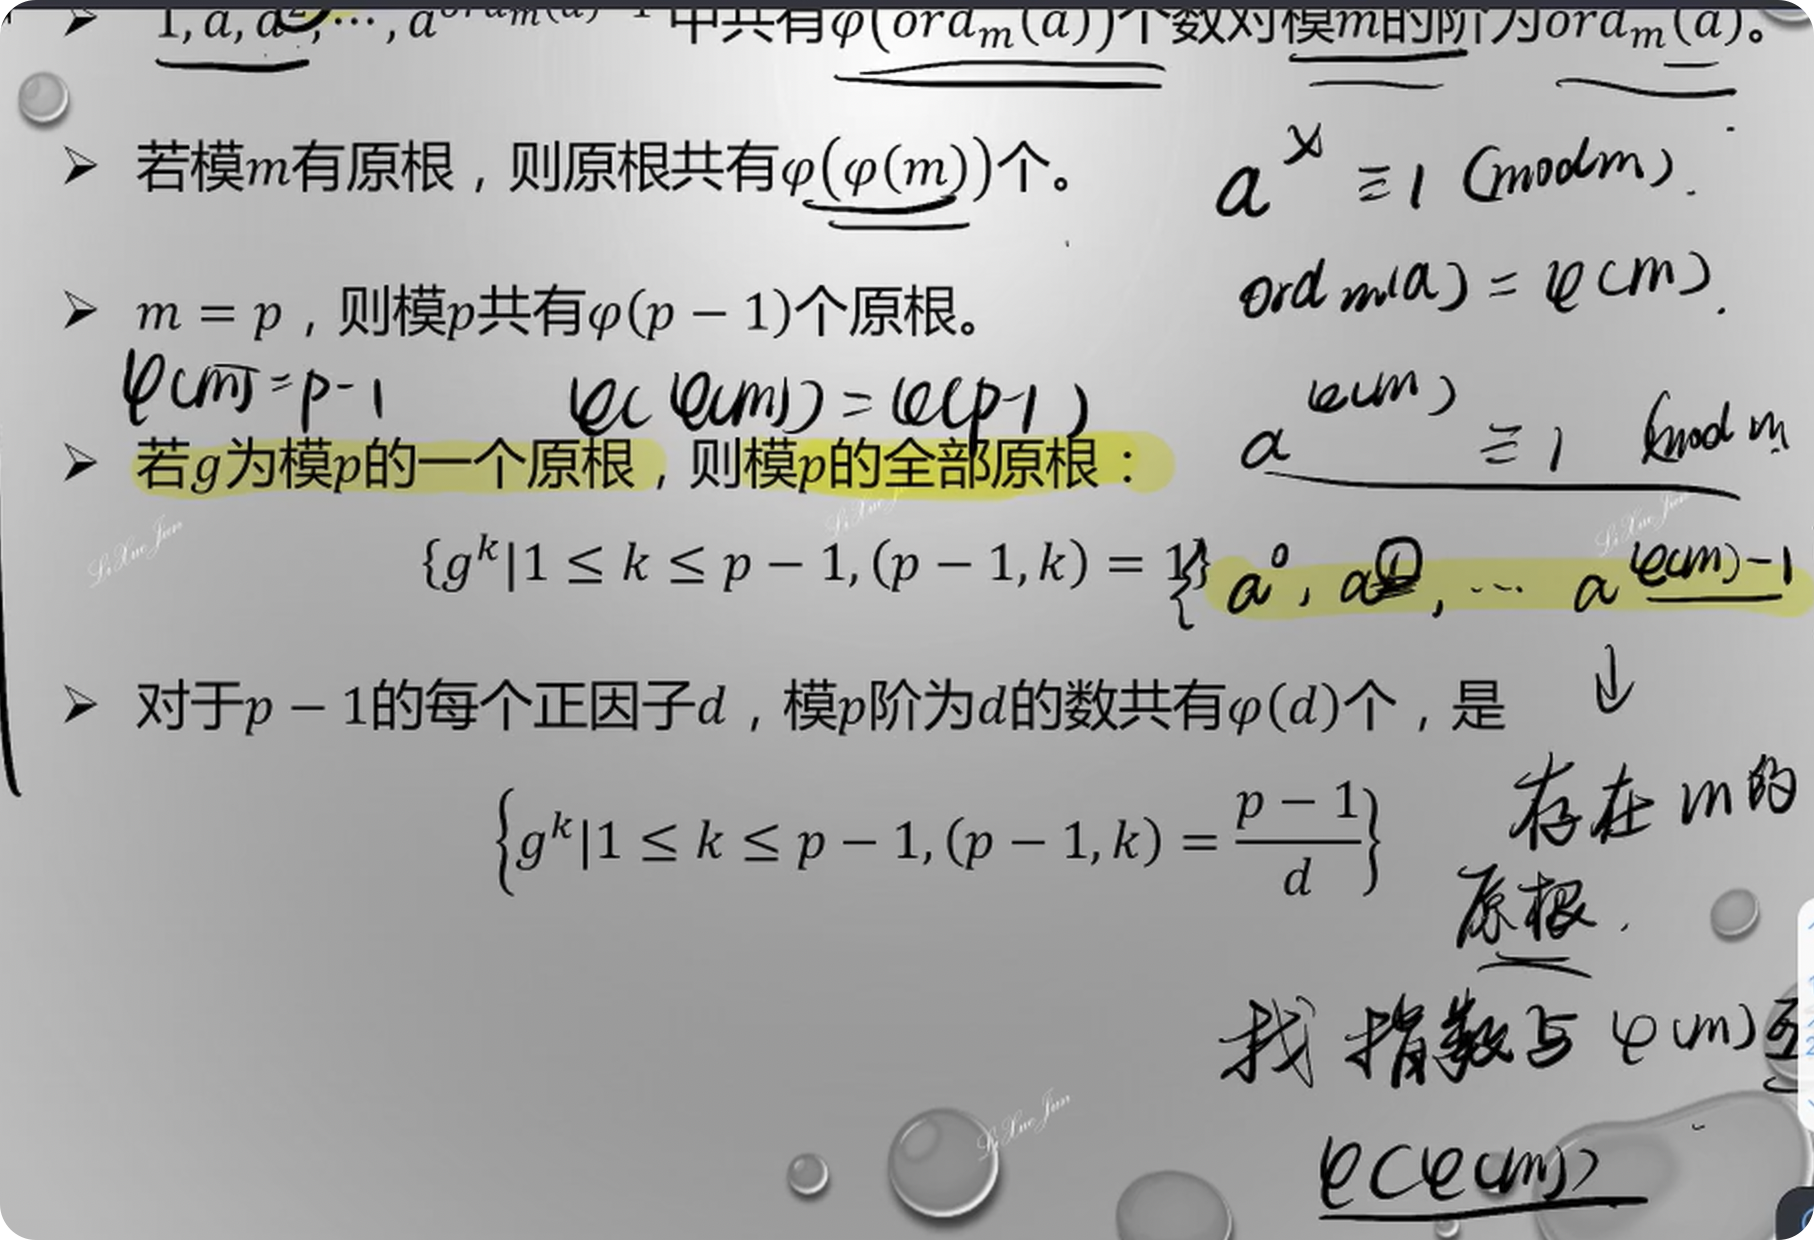 1, a, a², ⋯, a^{ord_m(a)-1} 中共有φ(ord_m(a))个数对模m的阶为ord_m(a)。
a^x ≡ 1 (mod m).
若模m有原根，则原根共有φ(φ(m))个。
ord_m(a) = φ(m).
m = p，则模p共有φ(p − 1)个原根。
φ(m) = p-1 φ(φ(m)) = φ(p-1)
a^{φ(m)} ≡ 1 (mod m
若g为模p的一个原根，则模p的全部原根：
{g^k|1 ≤ k ≤ p − 1, (p − 1, k) = 1}
{ a^0, a^1, ⋯ a^{φ(m)-1}
↓
对于p − 1的每个正因子d，模p阶为d的数共有φ(d)个，是
{g^k|1 ≤ k ≤ p − 1, (p − 1, k) = (p − 1)/d}
存在 m 的
原根.
找 指数与 φ(m) 互
φ(φ(m))
LiXueJun
LiXueJun
LiXueJun
LiXueJun